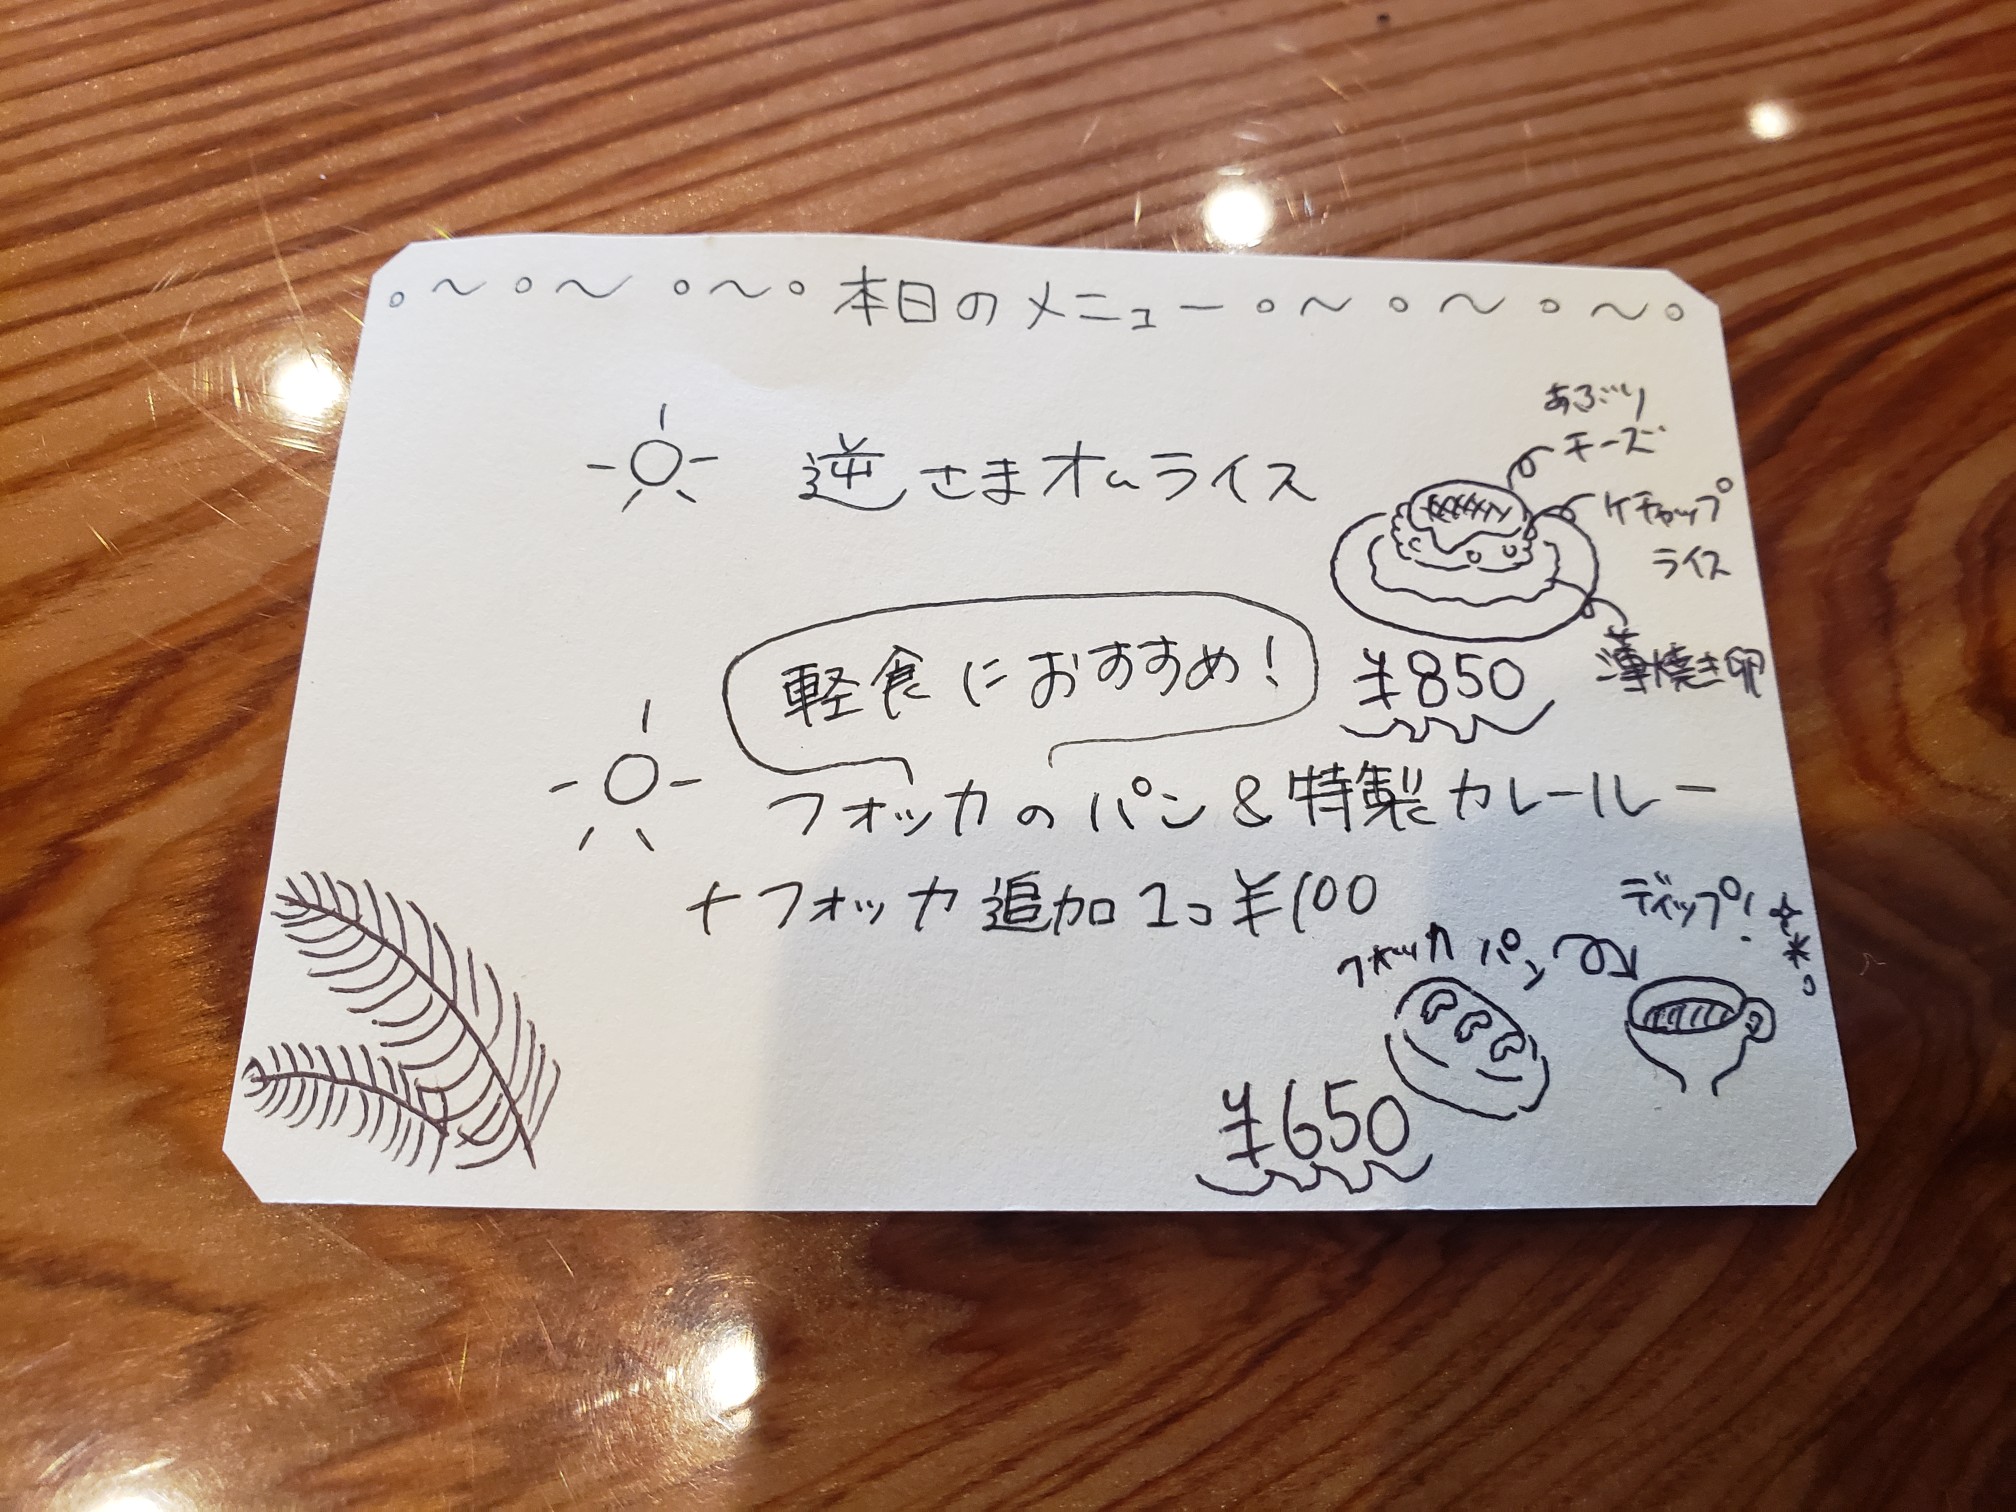 本日のメニュー
逆さまオムライス
あぶり
チーズ
ケチャップ
ライス
薄焼き卵
¥850
軽食におすすめ!
フォッカのパン&特製カレールー
+フォッカ追加1コ¥100
ディップ!
フォッカパン
¥650